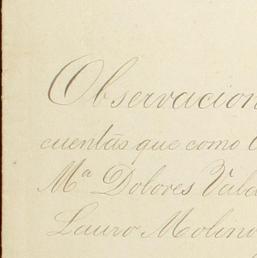 Observacion
cuentas que como
Mª Dolores Vald
Lauro Molino